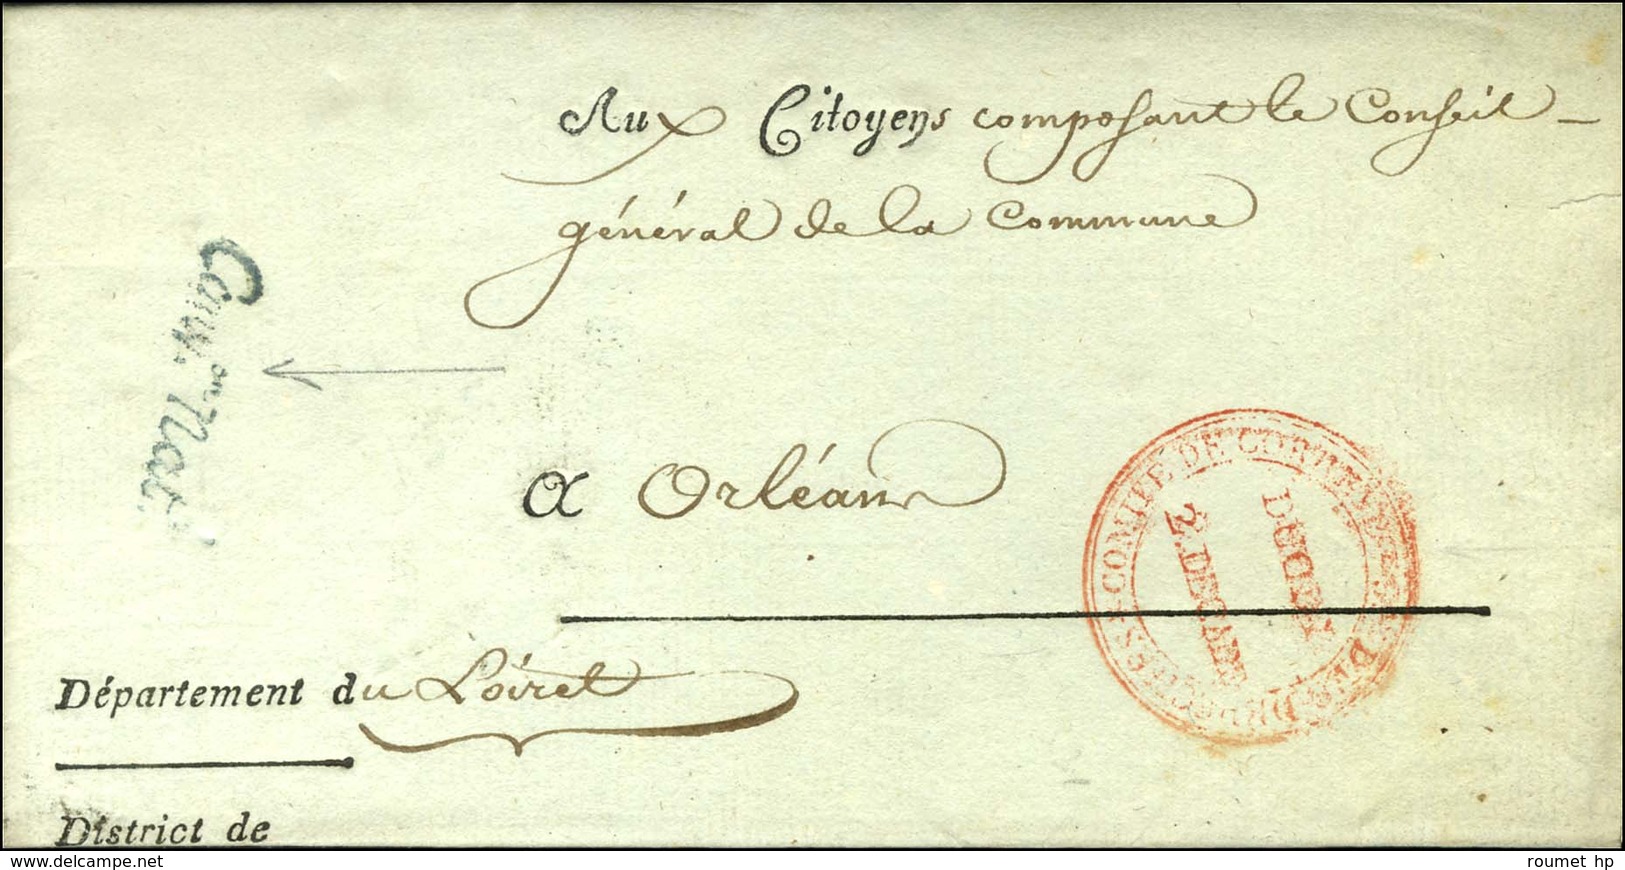 Aux Citoyens composant le Conseil
général de la Commune
Conv.on Nat.
a Orléans
COMITÉ DE CORRESP.
DES DÉPÊCHES
DUODI
2. DECADE
Département du Loiret
District de
www.delcampe.net
roumet hp